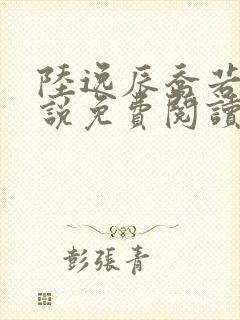 陸逸辰喬若
說免費閱讀
彭張青